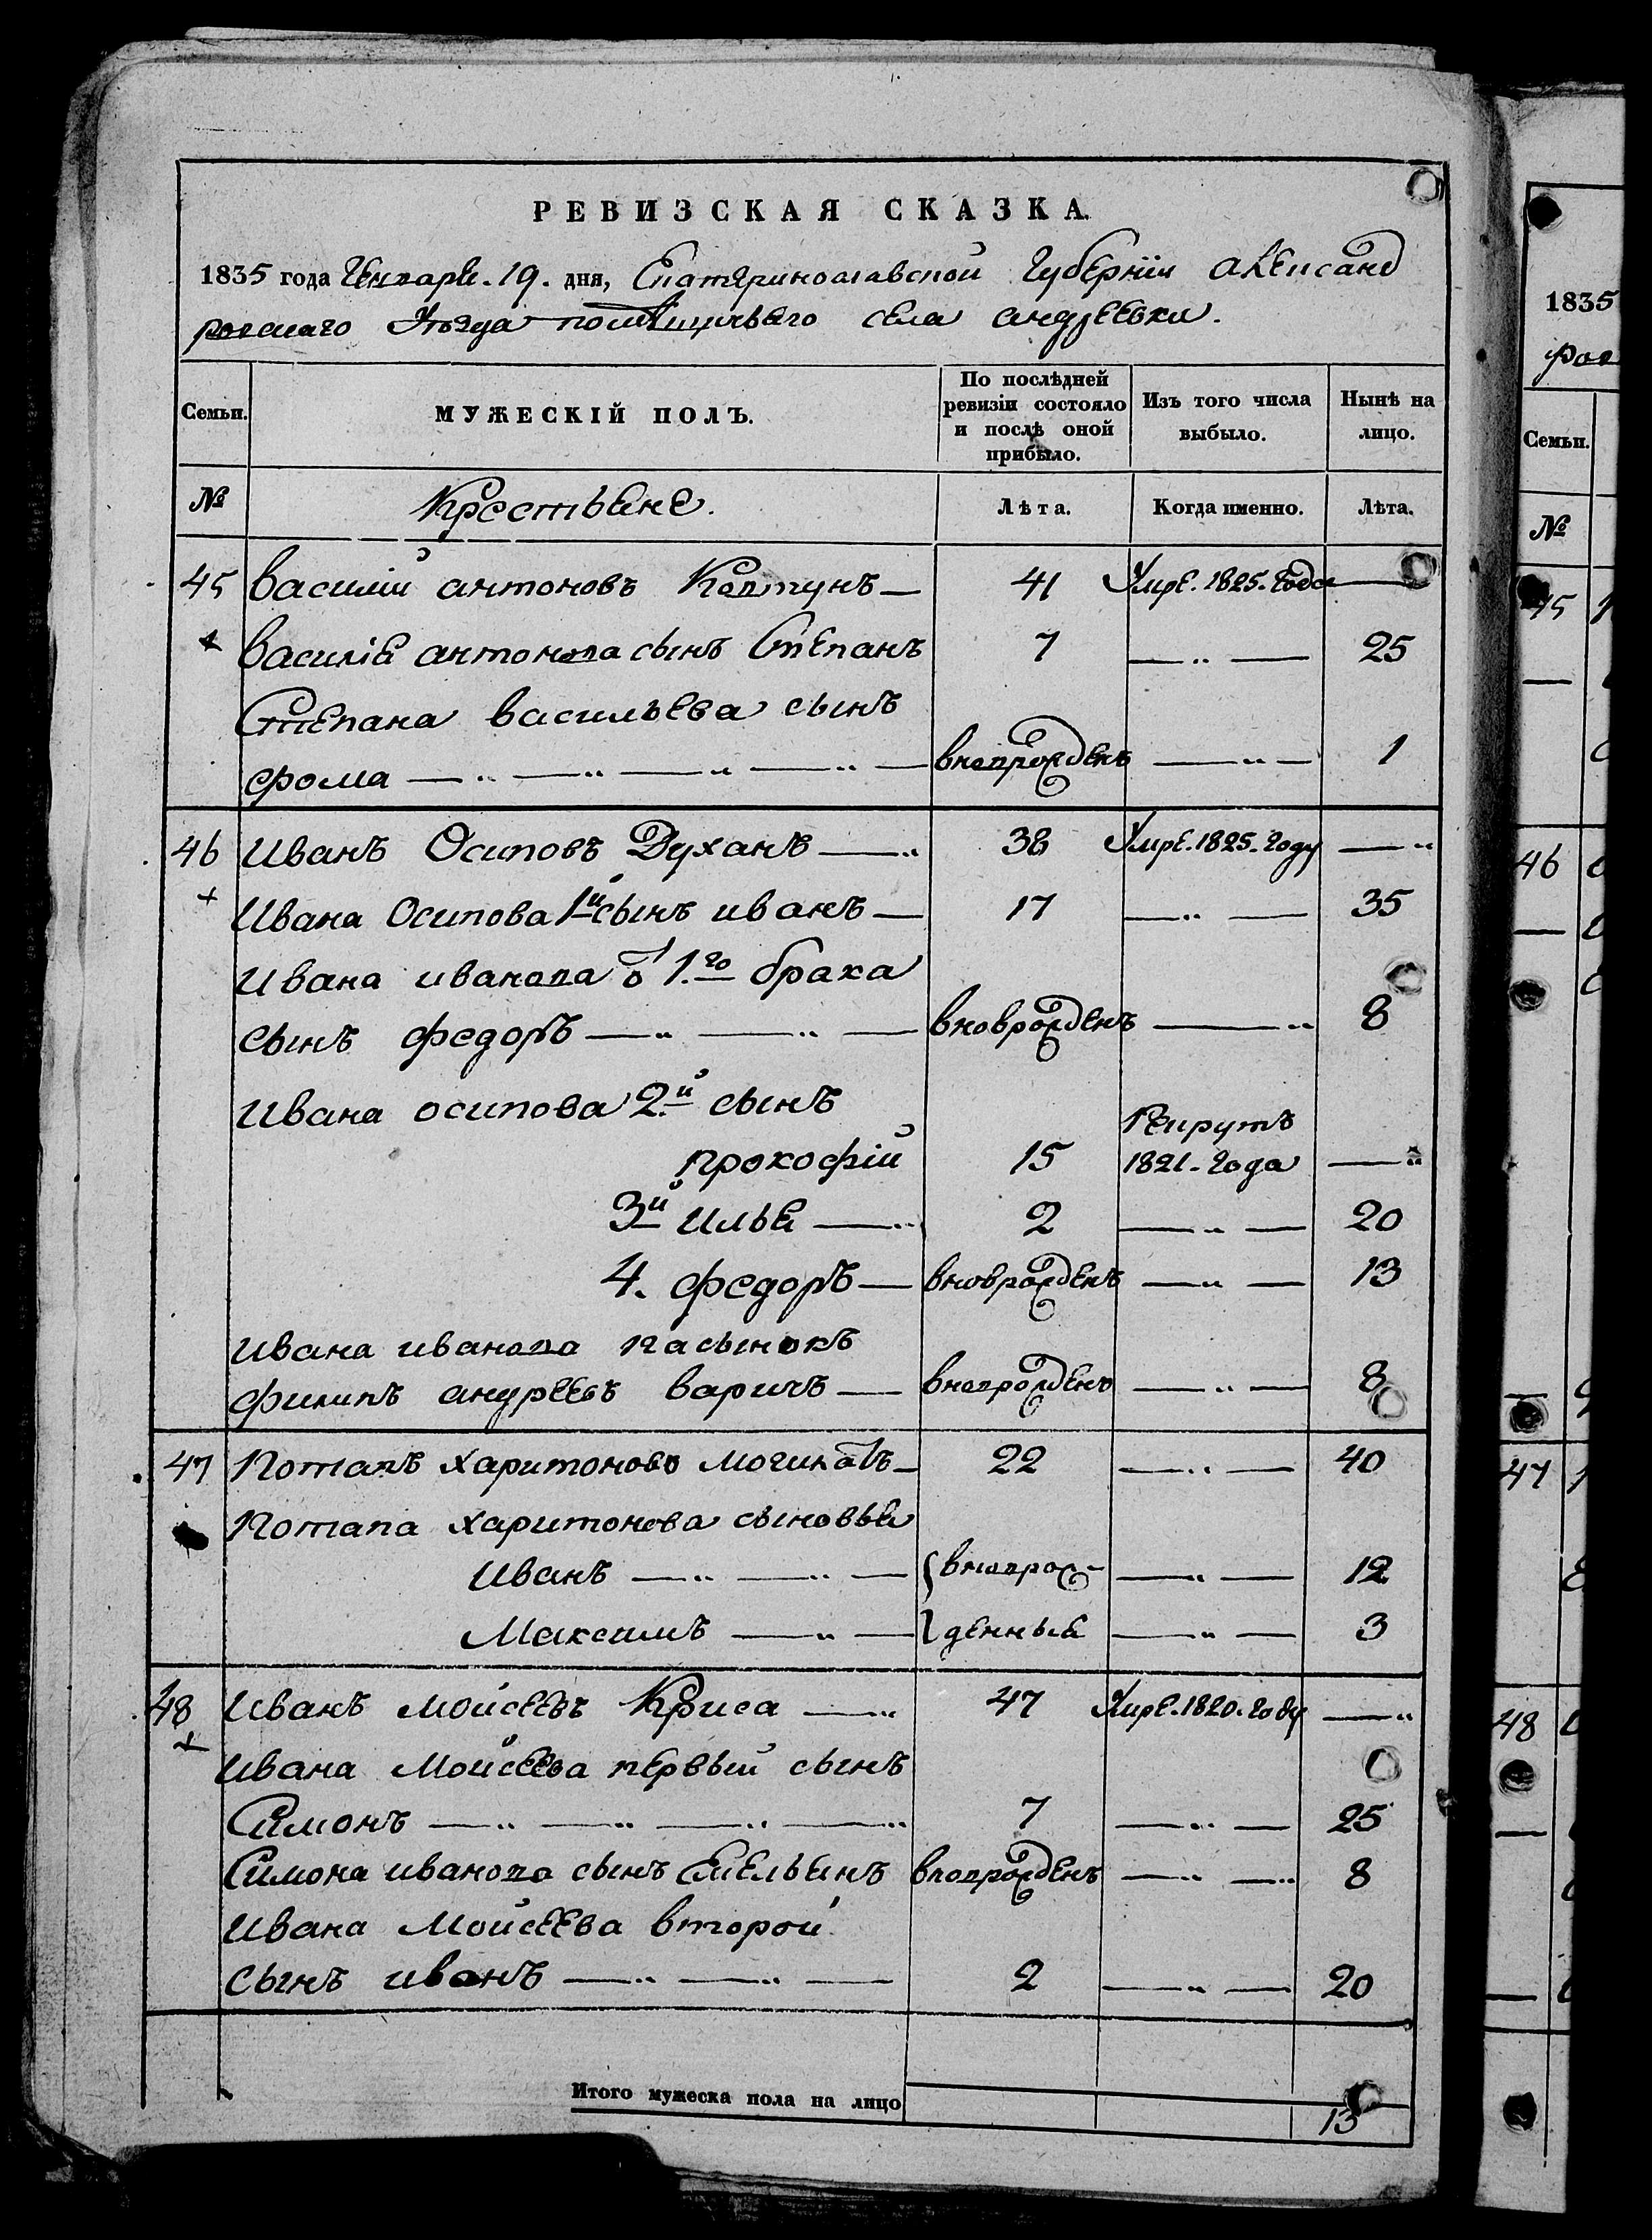 РЕВИЗСКАЯ СКАЗКА.
1835 года Генваря. 19. дня, Екатеринославской Губерніи александ
ровскаго Уѣзда помѣщичьяго села андреевки.
Семьи. МУЖЕСКІЙ ПОЛЪ. По послѣдней ревизіи состояло и послѣ оной прибыло. Изъ того числа выбыло. Нынѣ на лицо.
№ Крестьяне. Лѣта. Когда именно. Лѣта.
45 Василій антоновъ Ковтунъ — 41 Умре. 1825. Года —
Василія антонова сынъ Степанъ 7 —„— 25
Степана васильева сынъ
фома —„—„—„—„— вноврожденъ —„— 1
46 Иванъ Осиповъ Духанъ —„ 38 Умре. 1825. году —„
Ивана Осипова 1й сынъ иванъ — 17 —„— 35
Ивана иванова от 1.го брака
сынъ федоръ —„—„— вноврожденъ —„ 8
Ивана осипова 2.й сынъ
прокофій 15 Рекрутъ 1821. Года —„
3й илья —„ 2 —„— 20
4. федоръ — вноврожденъ —„— 13
Ивана иванова пасынокъ
филипъ андреевъ варичъ — вноврожденъ —„— 8
47 Потапъ харитоновъ — 22 —„— 40
Потапа харитонова сыновья
Иванъ —„—„— вноврож- —„— 12
Максимъ —„— денныя —„— 3
48 Иванъ Моисеевъ Криса —„ 47 Умре. 1820. году —„
Ивана Моисеева первый сынъ
Симонъ —„—„—„—„ 7 —„— 25
Симона иванова сынъ Емельянъ вноврожденъ —„—„ 8
Ивана Моисеева второй
сынъ иванъ —„—„— 2 —„— 20
Итого мужеска пола на лицо 13
1835
ров
Семьи.
№
45
46
47
48